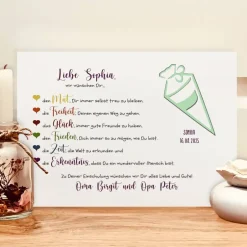 Liebe Sophia,
wir wünschen Dir,
den Mut, Dir immer selbst treu zu bleiben.
die Freiheit, Deinen eigenen Weg zu gehen.
das Glück, immer gute Freunde zu haben.
den Frieden, Dich immer so zu mögen, wie Du bist.
die Zeit, die Welt zu erkunden und
die Erkenntnis, dass Du ein wundervoller Mensch bist.
Zu Deiner Einschulung wünschen wir Dir alles Liebe und Gute!
Oma Birgit und Opa Peter
SOPHIA
16.08.2025